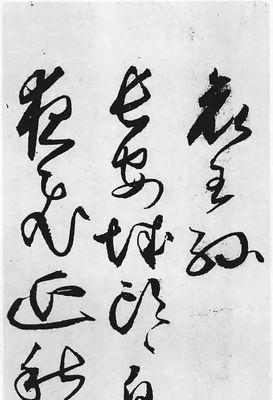 哀王孫
長安城頭
夜飛延秋